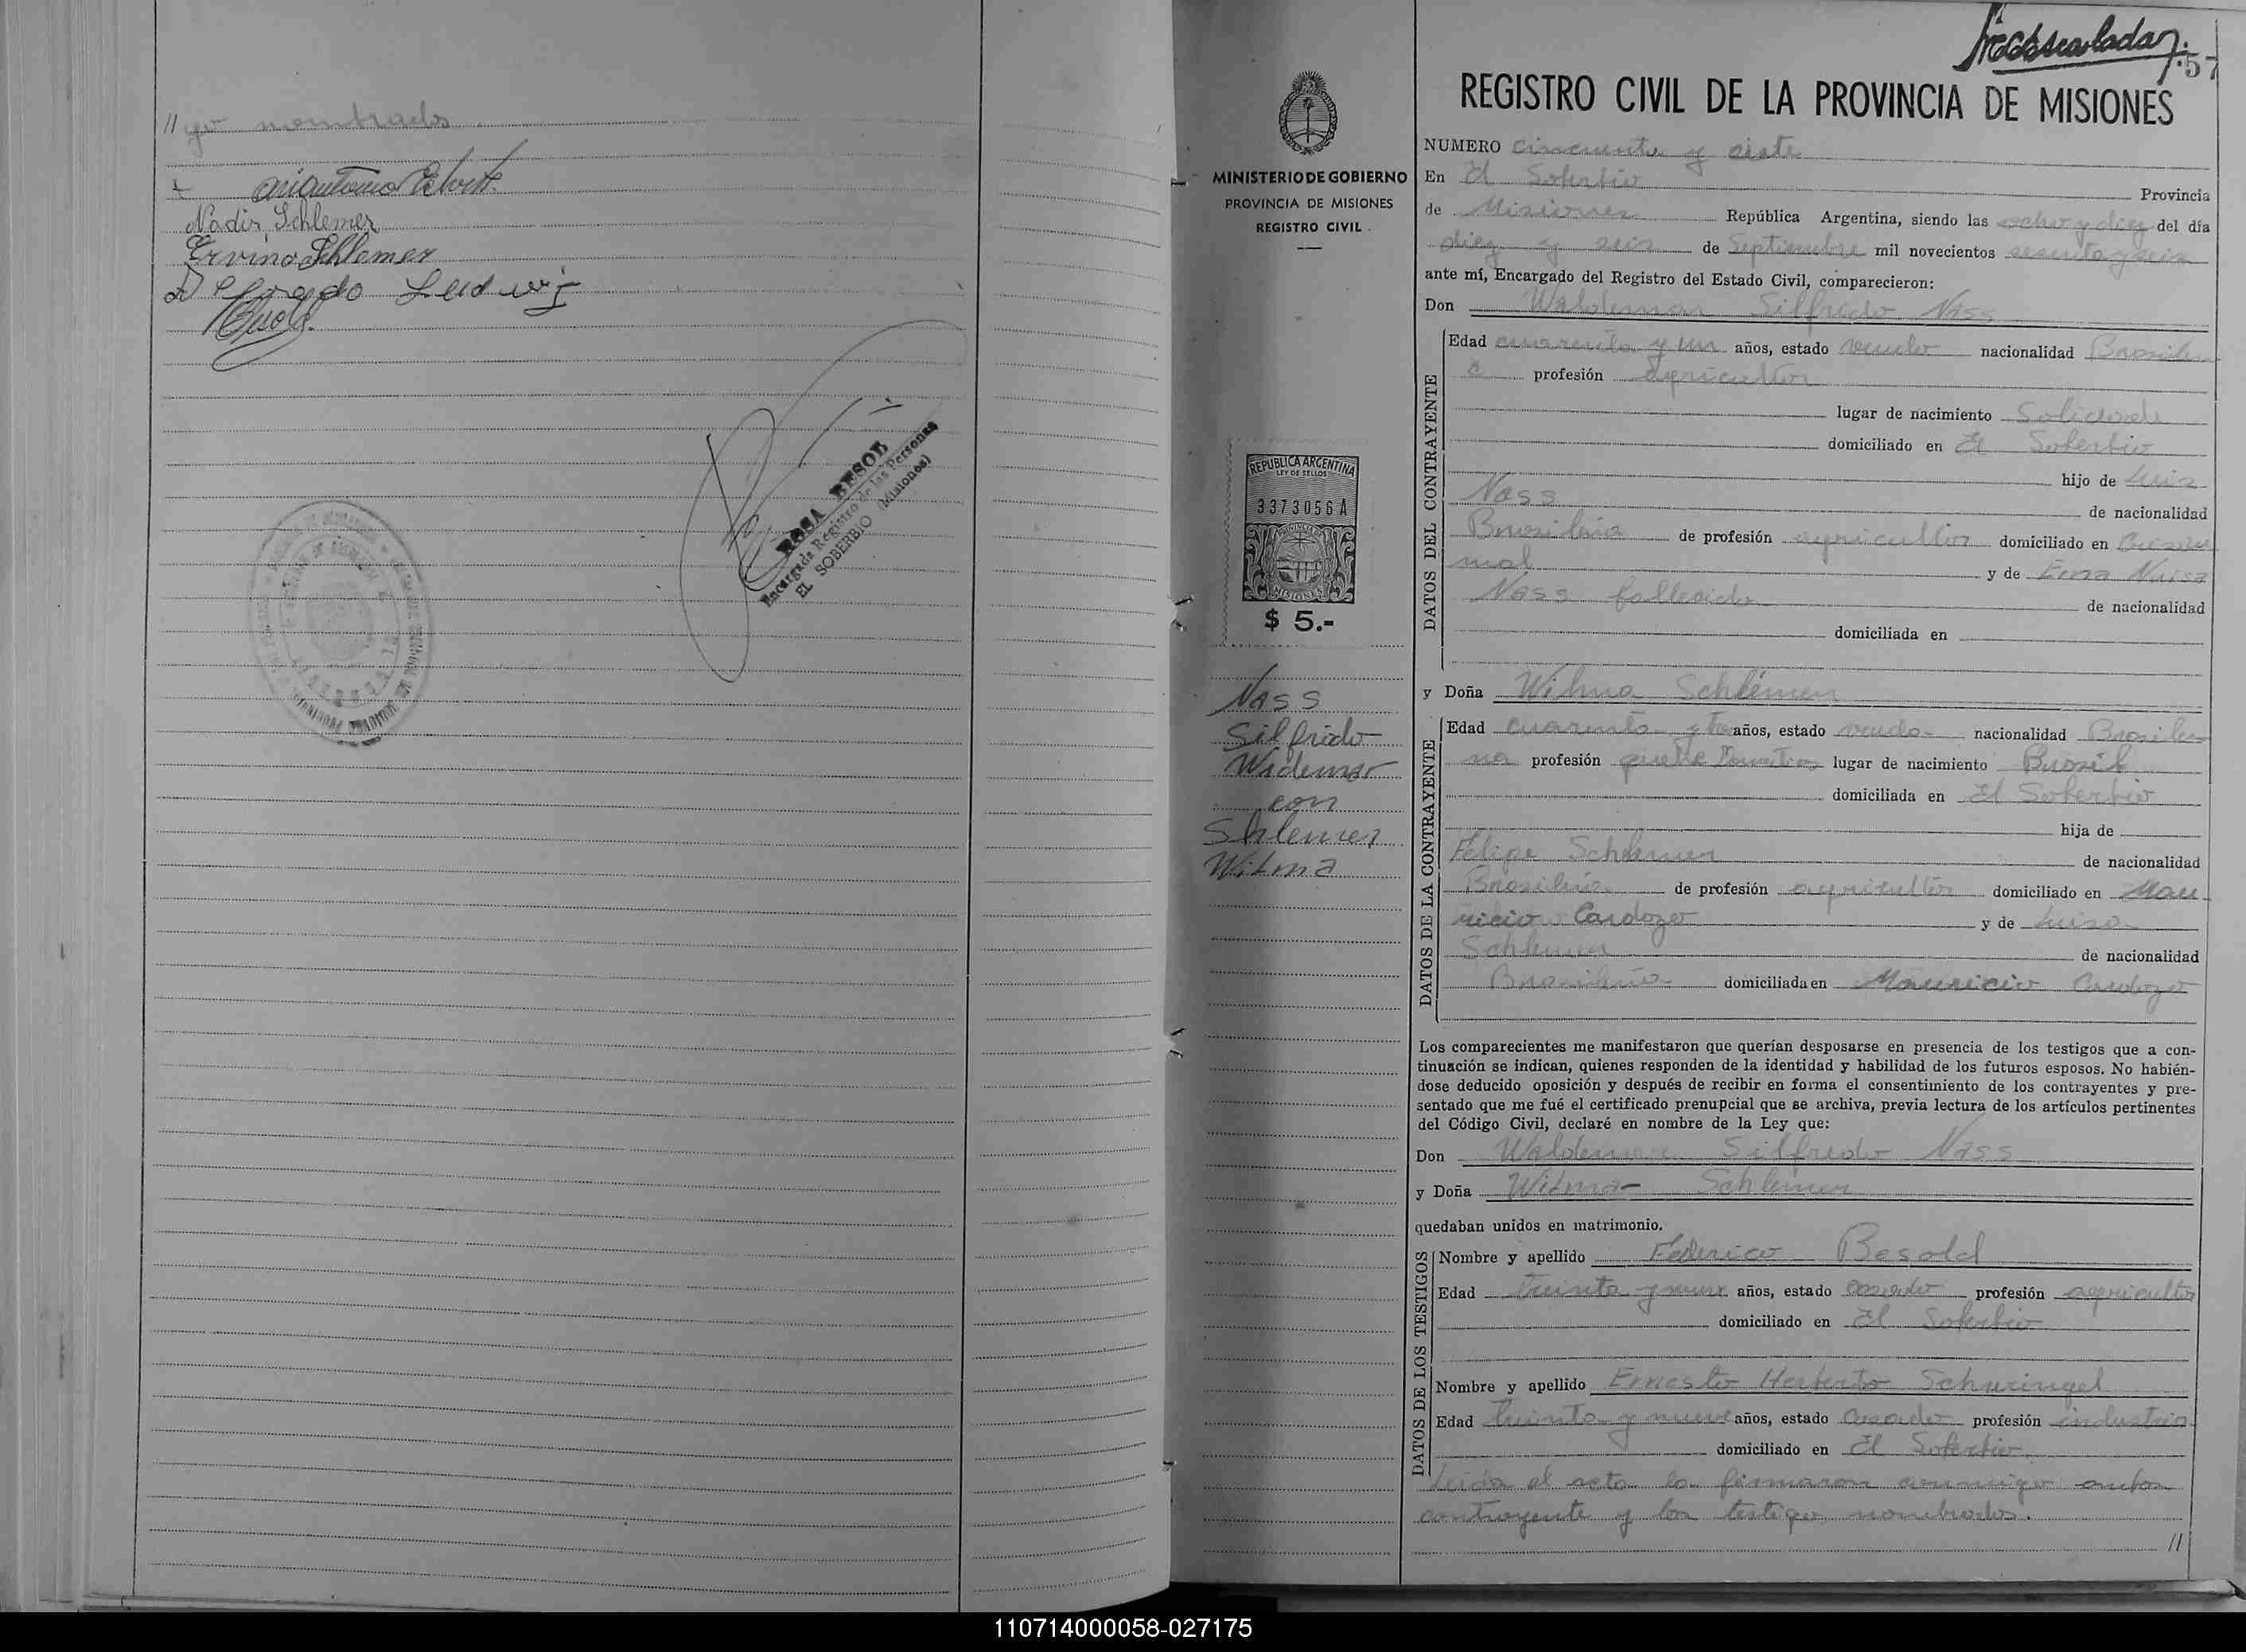 // go nombrados
Nadir Schlemer
Ervino Schlemer
Ludwig
ROSA BESOLD
Encargada Registro de las Personas
EL SOBERBIO (Misiones)
57
REGISTRO CIVIL DE LA PROVINCIA DE MISIONES
MINISTERIO DE GOBIERNO
PROVINCIA DE MISIONES
REGISTRO CIVIL
REPUBLICA ARGENTINA
LEY DE SELLOS
3373056 A
MISIONES
$ 5.-
Nass
Silfrido
Widemar
con
Shlemer
Wilma
NUMERO cincuenta y siete
En El Soberbio Provincia
de Misiones República Argentina, siendo las ocho y diez del día
diez y seis de Septiembre mil novecientos sesenta y seis
ante mí, Encargado del Registro del Estado Civil, comparecieron:
Don Waldemar Silfredo Nass
DATOS DEL CONTRAYENTE
Edad cuarenta y un años, estado viudo nacionalidad Brasilen
a profesión agricultor
lugar de nacimiento
domiciliado en El Soberbio
hijo de Luis
Nass de nacionalidad
Brasileña de profesión agricultor domiciliado en
y de
Nass fallecida de nacionalidad
domiciliada en
y Doña Wilma Schlemer
DATOS DE LA CONTRAYENTE
Edad cuarenta y años, estado viuda nacionalidad Brasile
na profesión lugar de nacimiento Brasil
domiciliada en El Soberbio
hija de
Felipe Schlemer de nacionalidad
Brasileña de profesión agricultor domiciliado en Mau
ricio Cardozo y de Luisa
Schlemer de nacionalidad
Brasileña domiciliada en Mauricio Cardozo
Los comparecientes me manifestaron que querían desposarse en presencia de los testigos que a con-
tinuación se indican, quienes responden de la identidad y habilidad de los futuros esposos. No habién-
dose deducido oposición y después de recibir en forma el consentimiento de los contrayentes y pre-
sentado que me fué el certificado prenupcial que se archiva, previa lectura de los artículos pertinentes
del Código Civil, declaré en nombre de la Ley que:
Don Waldemar Silfredo Nass
y Doña Wilma Schlemer
quedaban unidos en matrimonio.
DATOS DE LOS TESTIGOS
Nombre y apellido Federico Besold
Edad treinta y nueve años, estado casado profesión agricultor
domiciliado en El Soberbio
Nombre y apellido Ernesto Herberto Schwingel
Edad treinta y nueve años, estado casado profesión industria
domiciliado en El Soberbio
Leída el acta la firmaron conmigo ambos
contrayente y los testigos nombrados.
//
110714000058-027175